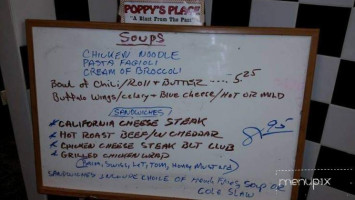 POPPY'S PLACE
"A Blast From The Past"
SOUPS
CHICKEN NOODLE
PASTA FAGIOLI
CREAM OF BROCCOLI
Bowl of Chili/Roll + BUTTER ---- 5.25
Buffalo Wings/celery - Blue cheese/Hot OR MILD
SANDWICHES
CALIFORNIA CHEESE STEAK
HOT ROAST BEEF/W CHEDDAR
8.95
CHICKEN CHEESE STEAK CLUB
GRILLED CHICKEN WRAP
SWISS, LET, TOM, Honey Mustard
SANDWICHES INCLUDE CHOICE OF FRIES, SOUP OR
COLE SLAW
menupix